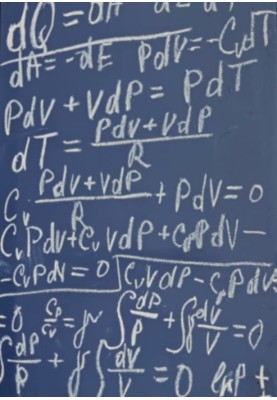 dQ = dA
dA = -dE   PdV = -CvdT
PdV + VdP = PdT
dT = PdV+VdP / R
Cv PdV+VdP / R + PdV = 0
CvPdV+CvVdP + CpPdV −
-CvPdV = 0 CvVdP - CpPdV=
=0 Cp/Cv = γ ∫dP/P + γ∫dV/V = 0
∫dP/P + γ∫dV/V = 0 lnP +